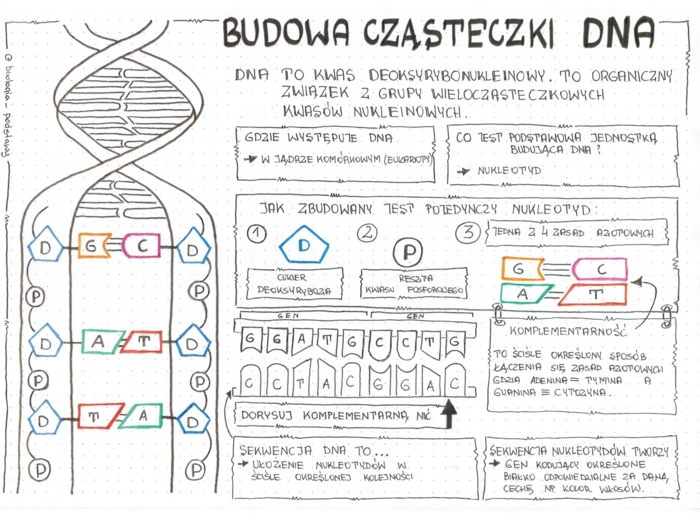 @ biologia_podstawy
BUDOWA CZĄSTECZKI DNA
DNA TO KWAS DEOKSYRYBONUKLEINOWY. TO ORGANICZNY
ZWIĄZEK Z GRUPY WIELOCZĄSTECZKOWYCH
KWASÓW NUKLEINOWYCH.
GDZIE WYSTĘPUJE DNA
→ W JĄDRZE KOMÓRKOWYM (EUKARIOTY)
CO JEST PODSTAWOWĄ JEDNOSTKĄ
BUDUJĄCĄ DNA?
→ NUKLEOTYD
JAK ZBUDOWANY JEST POJEDYNCZY NUKLEOTYD:
1 D
CUKIER
DEOKSYRYBOZA
2 P
RESZTA
KWASU FOSFOROWEGO
3 JEDNA Z 4 ZASAD AZOTOWYCH
G C
A T
KOMPLEMENTARNOŚĆ
TO ŚCIŚLE OKREŚLONY SPOSÓB
ŁĄCZENIA SIĘ ZASAD AZOTOWYCH
GDZIE ADENINA = TYMINA A
GUANINA ≡ CYTOZYNA.
D G C D
P
D A T D
P
D T A D
P P
GEN GEN
G G A T G C C T G
C C T A C G G A C
DORYSUJ KOMPLEMENTARNĄ NIĆ
SEKWENCJA DNA TO...
→ UŁOŻENIE NUKLEOTYDÓW W
ŚCIŚLE OKREŚLONEJ KOLEJNOŚCI
SEKWENCJA NUKLEOTYDÓW TWORZY
→ GEN KODUJĄCY OKREŚLONE
BIAŁKO ODPOWIEDZIALNE ZA DANĄ
CECHĘ NP KOLOR WŁOSÓW.